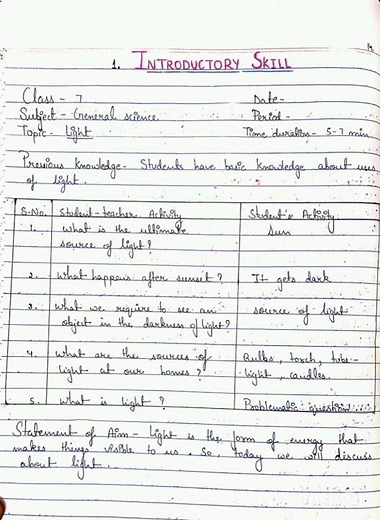 1. INTRODUCTORY SKILL
Class - 7 Date -
Subject - General science Period -
Topic - Light Time duration - 5-7 min
Previous knowledge - Students have basic knowledge about uses
of light.
S.No. Student-teacher Activity Student's Activity
1. What is the ultimate Sun
source of light?
2. What happens after sunset? It gets dark
3. What we require to see an source of light
object in the darkness of light?
4. What are the sources of Bulbs, torch, tube-
light at our homes? light, candles.
5. What is light? Problematic question
Statement of Aim - Light is the form of energy that
makes things visible to us. So, today we will discuss
about light.